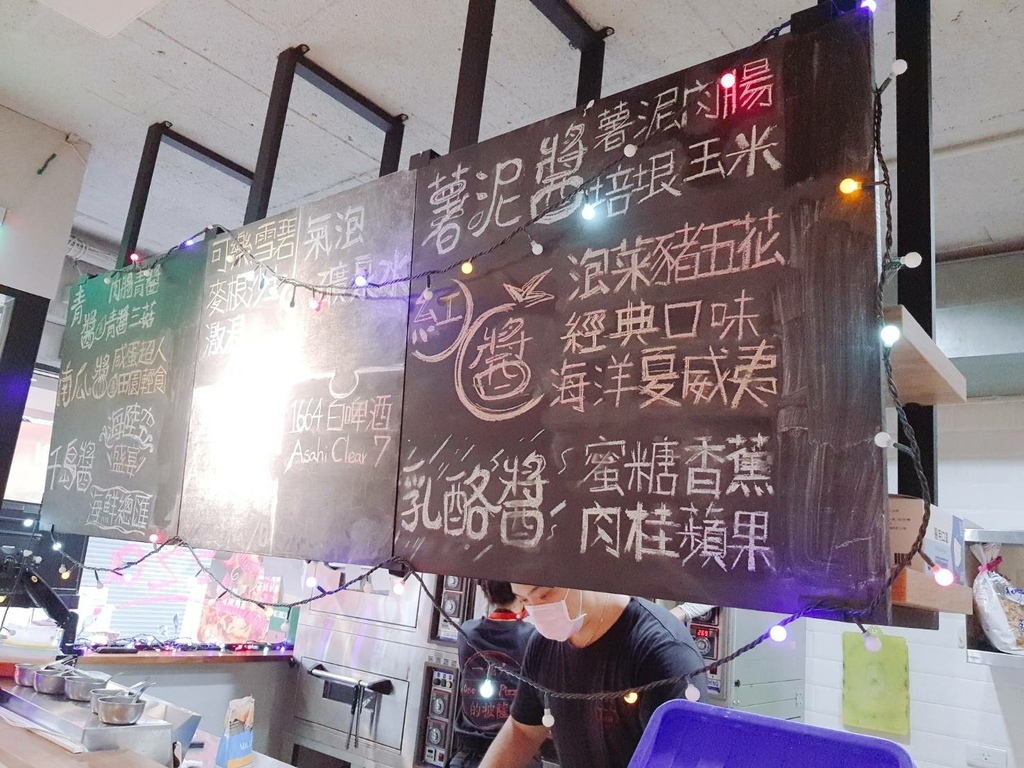 青醬
肉腸青醬
青醬三菇
南瓜醬
鹹蛋超人
田園輕食
千島醬
海陸
盛宴
海鮮總匯
可樂 雪碧
麥根沙士
氣泡
礦泉水
1664 白啤酒
Asahi Clear 7
薯泥醬
薯泥肉腸
培垠玉米
紅醬
泡菜豬五花
經典口味
海洋夏威夷
乳酪醬
蜜糖香蕉
肉桂蘋果
的披薩